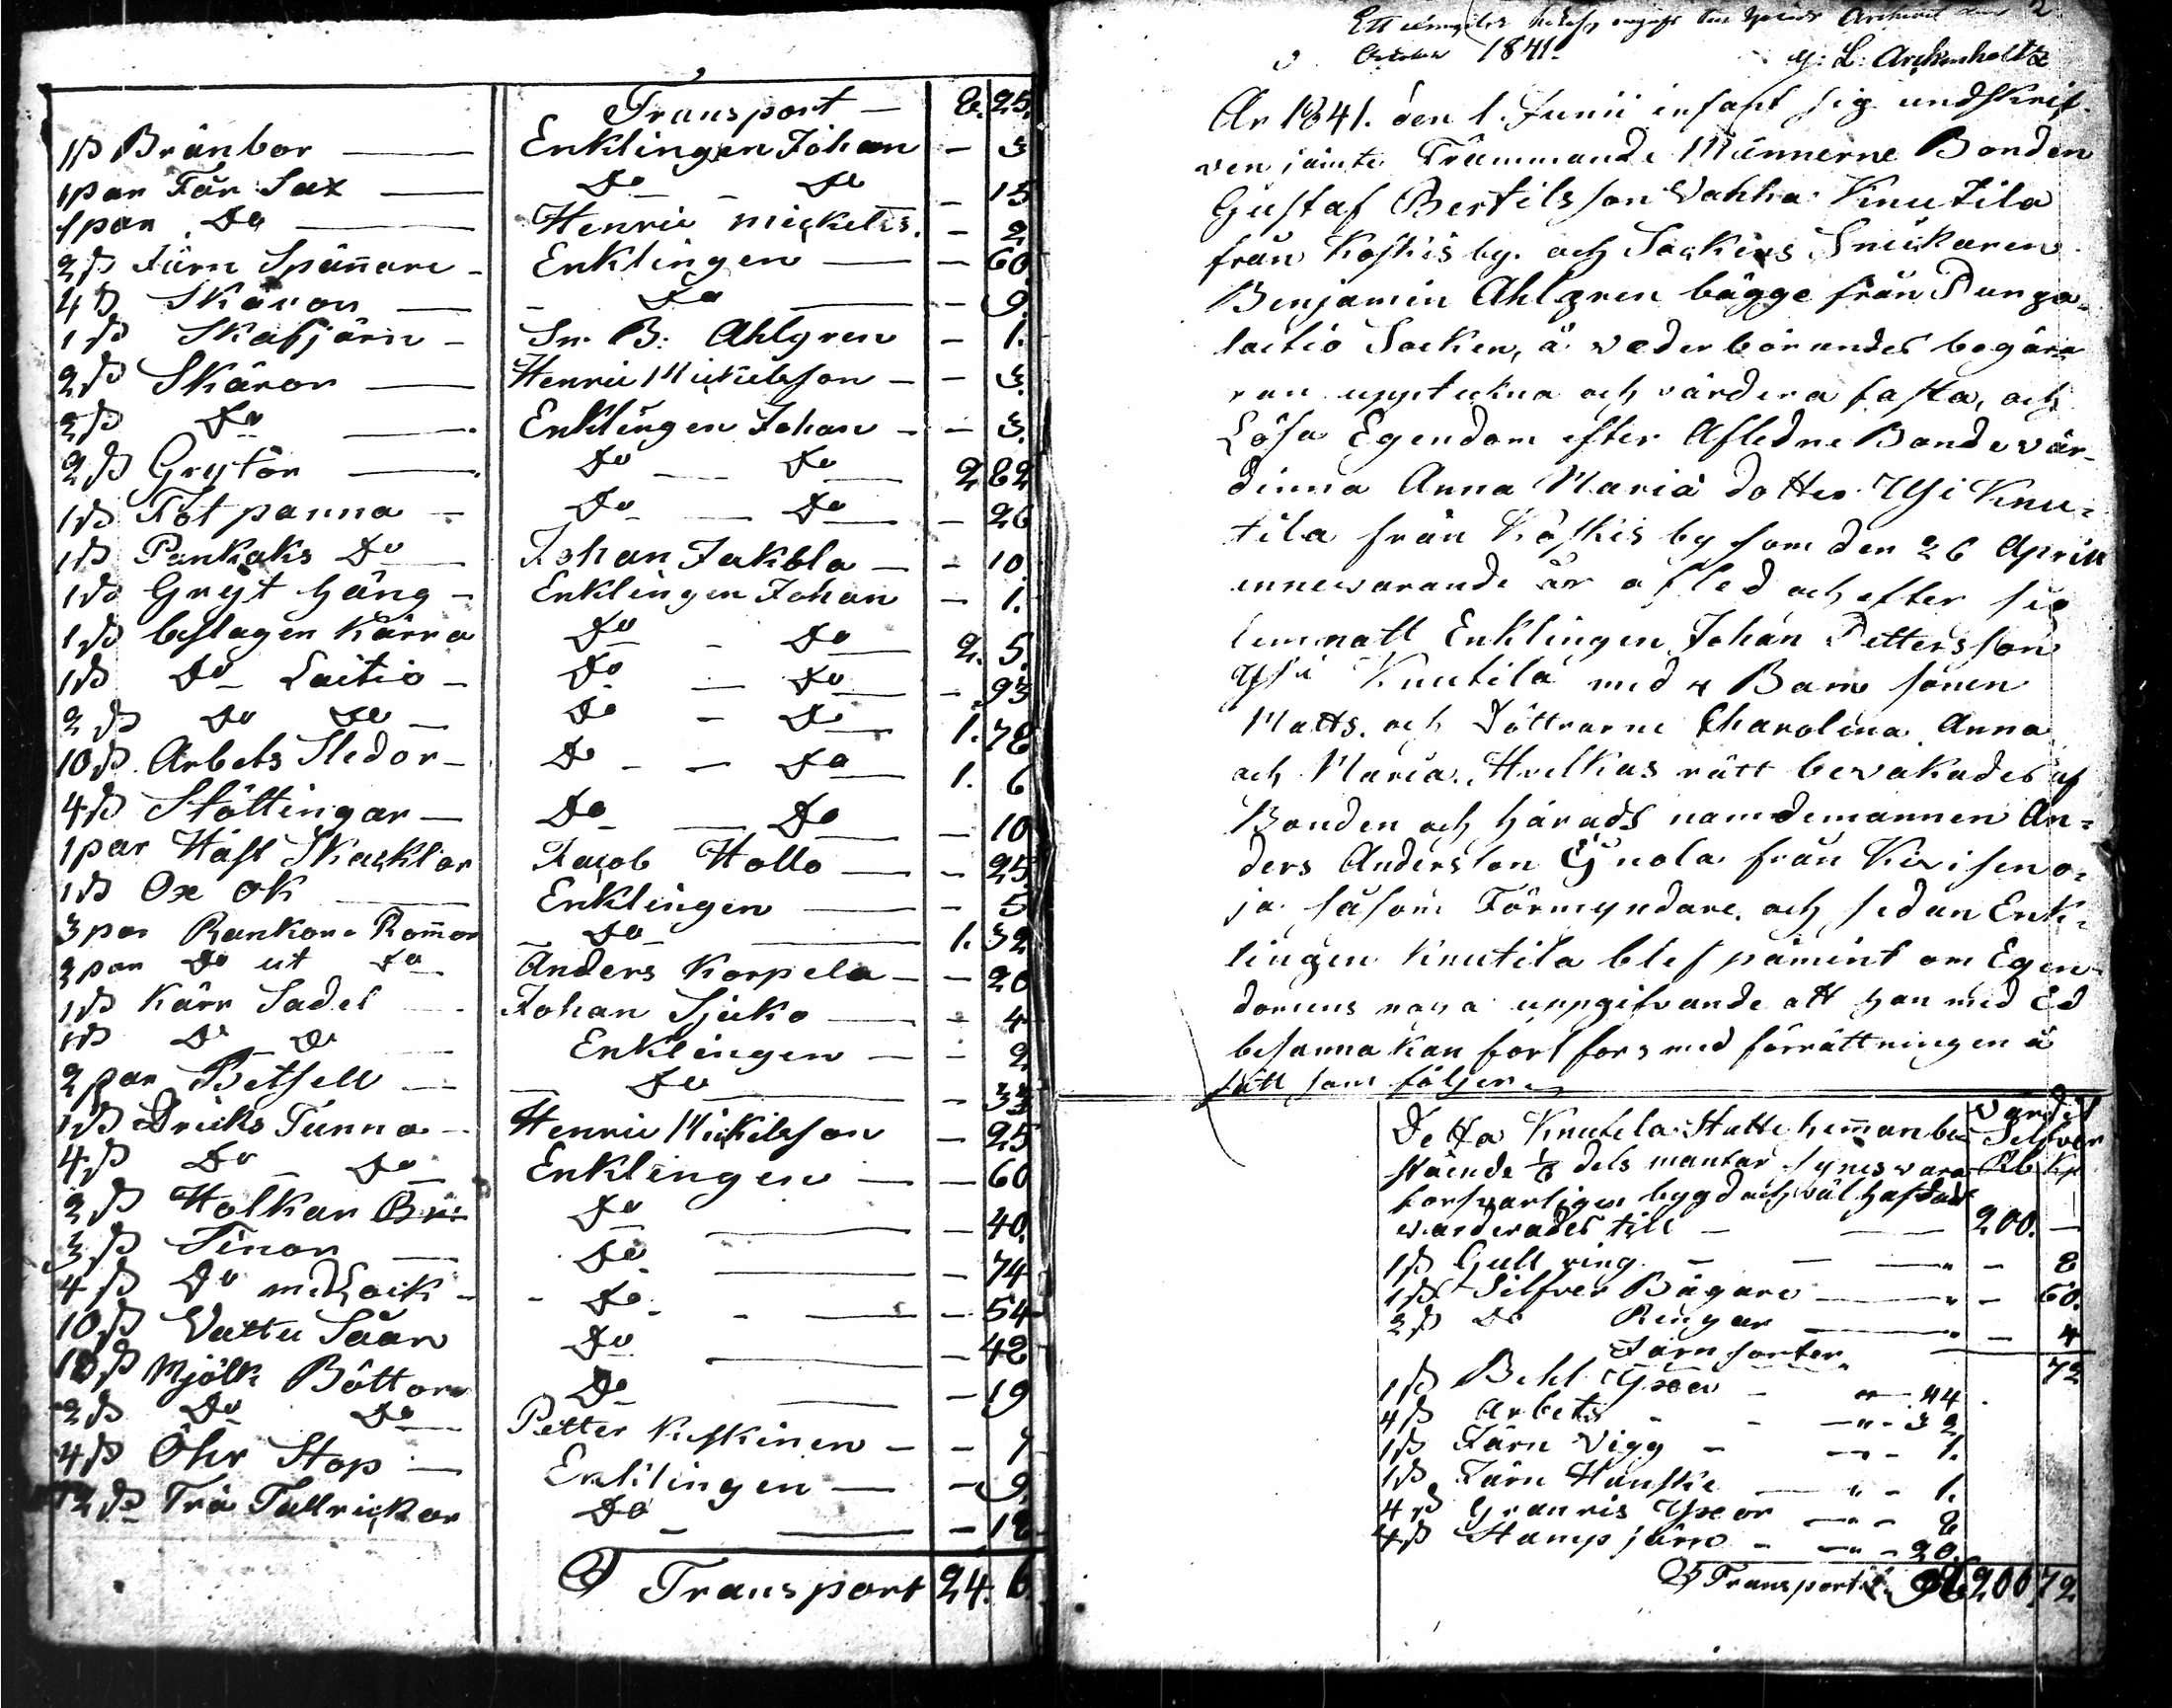 Transport — 8. 25.
1 st Bränbor — Enklingen Johan — 3
1 par Får Sax — Do — Do — 15
1 par Do — Henric Mickelss. — 2
2 st Järn Spannare — Enklingen — 60
4 st Skäror — Do — 9.
1 st Skafjärn — Sn. B: Ahlgren — 1.
2 st Skäror — Henric Mickelsson — 3.
2 st Do — Enklingen Johan — 3.
2 st Grytor — Do — Do — 2 82
1 st Fot panna — Do — Do — 26
1 st Pankaks Do — Johan Jakola — 10
1 st Gryt häng — Enklingen Johan — 1.
1 st beslagen Kärra — Do — Do — 2. 5.
1 st Do Laitio — Do — Do — 93
2 st Do Do — Do — Do — 1. 78
10 st Arbets Sledor — Do — Do — 1. 6
4 st Stöttingar — Do — Do — 10
1 par Häst Skacklor — Jacob Hollo — 25
1 st Oxe ok — Enklingen — 5
3 par Rankor o Rommor — Do — 1. 32
2 par Do ut Do — Anders Korpela — 20
1 st Kärr Sadel — Johan Sjuko — 4
1 st Do Do — Enklingen — 2
2 par Betsell — Do — 33
1 st Dricks Tunna — Henric Mickelsson — 25
4 st Do — Do — Enklingen — 60
2 st Holkar — Do — 40.
3 st Tinor — Do — 74
4 st Do m. Lock — Do — 54
10 st Vattu Såar — Do — 42
10 st Mjölk Böttor — Do — 19
2 st Do Do — Petter Keskinen — 7
4 st Öhr Stop — Enklingen — 9.
12 st Trä Tallrickar — Do — 18
Transport 24. 6.
Ett exemplar till Archivet den 2
October 1841.
L: Archenholtz
År 1841. den 1. Junii infant sig undskrif-
ven jämte Främmande Männerne Bonden
Gustaf Bertilsson Vahha Knutila
från Koskis by. och Sockens Snickaren
Benjamin Ahlgren bägge från Punga-
laitio Socken, å vederbörandes begära
ran uppteckna och värdera fasta, och
Lösa Egendom efter Aflidne Bonde vär-
dinna Anna Maria dotter Ysi Knu-
tila från Koskis by som den 26 April
innevarande år afled och efter sig
lemnatt Enklingen Johan Pettersson
Ysi Knutila med 4 Barn sonen
Matts, och Döttrarne Charolina Anna
och Maria, Hvilkas rätt bevakades af
Bonden och härads nämdemannen An-
ders Andersson från Kiviseno-
ja såsom Förmyndare, och sedan Enk-
lingen Knutila blef påmint om Egen-
domens uppgifvande att han med Ed
besanna kan fort fors med förrättningen å
sätt som följer.
Värdet
Silfver
Rb Kp
Detta Knutila Skatte hemman be-
stående 1/8 dels mantal synes vara
forsvarligen bygd och väl häfdat
värderades till — 200. —
1 st Gull ring — 8
1 st Silfver Bägare — 60.
2 st Do Ringar — 4
72
Järn sorter
1 st Bihl Yxen — 44
4 st Arbets — 32
1 st Järn Vigg — 1.
1 st Järn Hanske — 1.
4 st Granris Yxor — 8
4 st Stamp järn — 20.
Transport 200 72